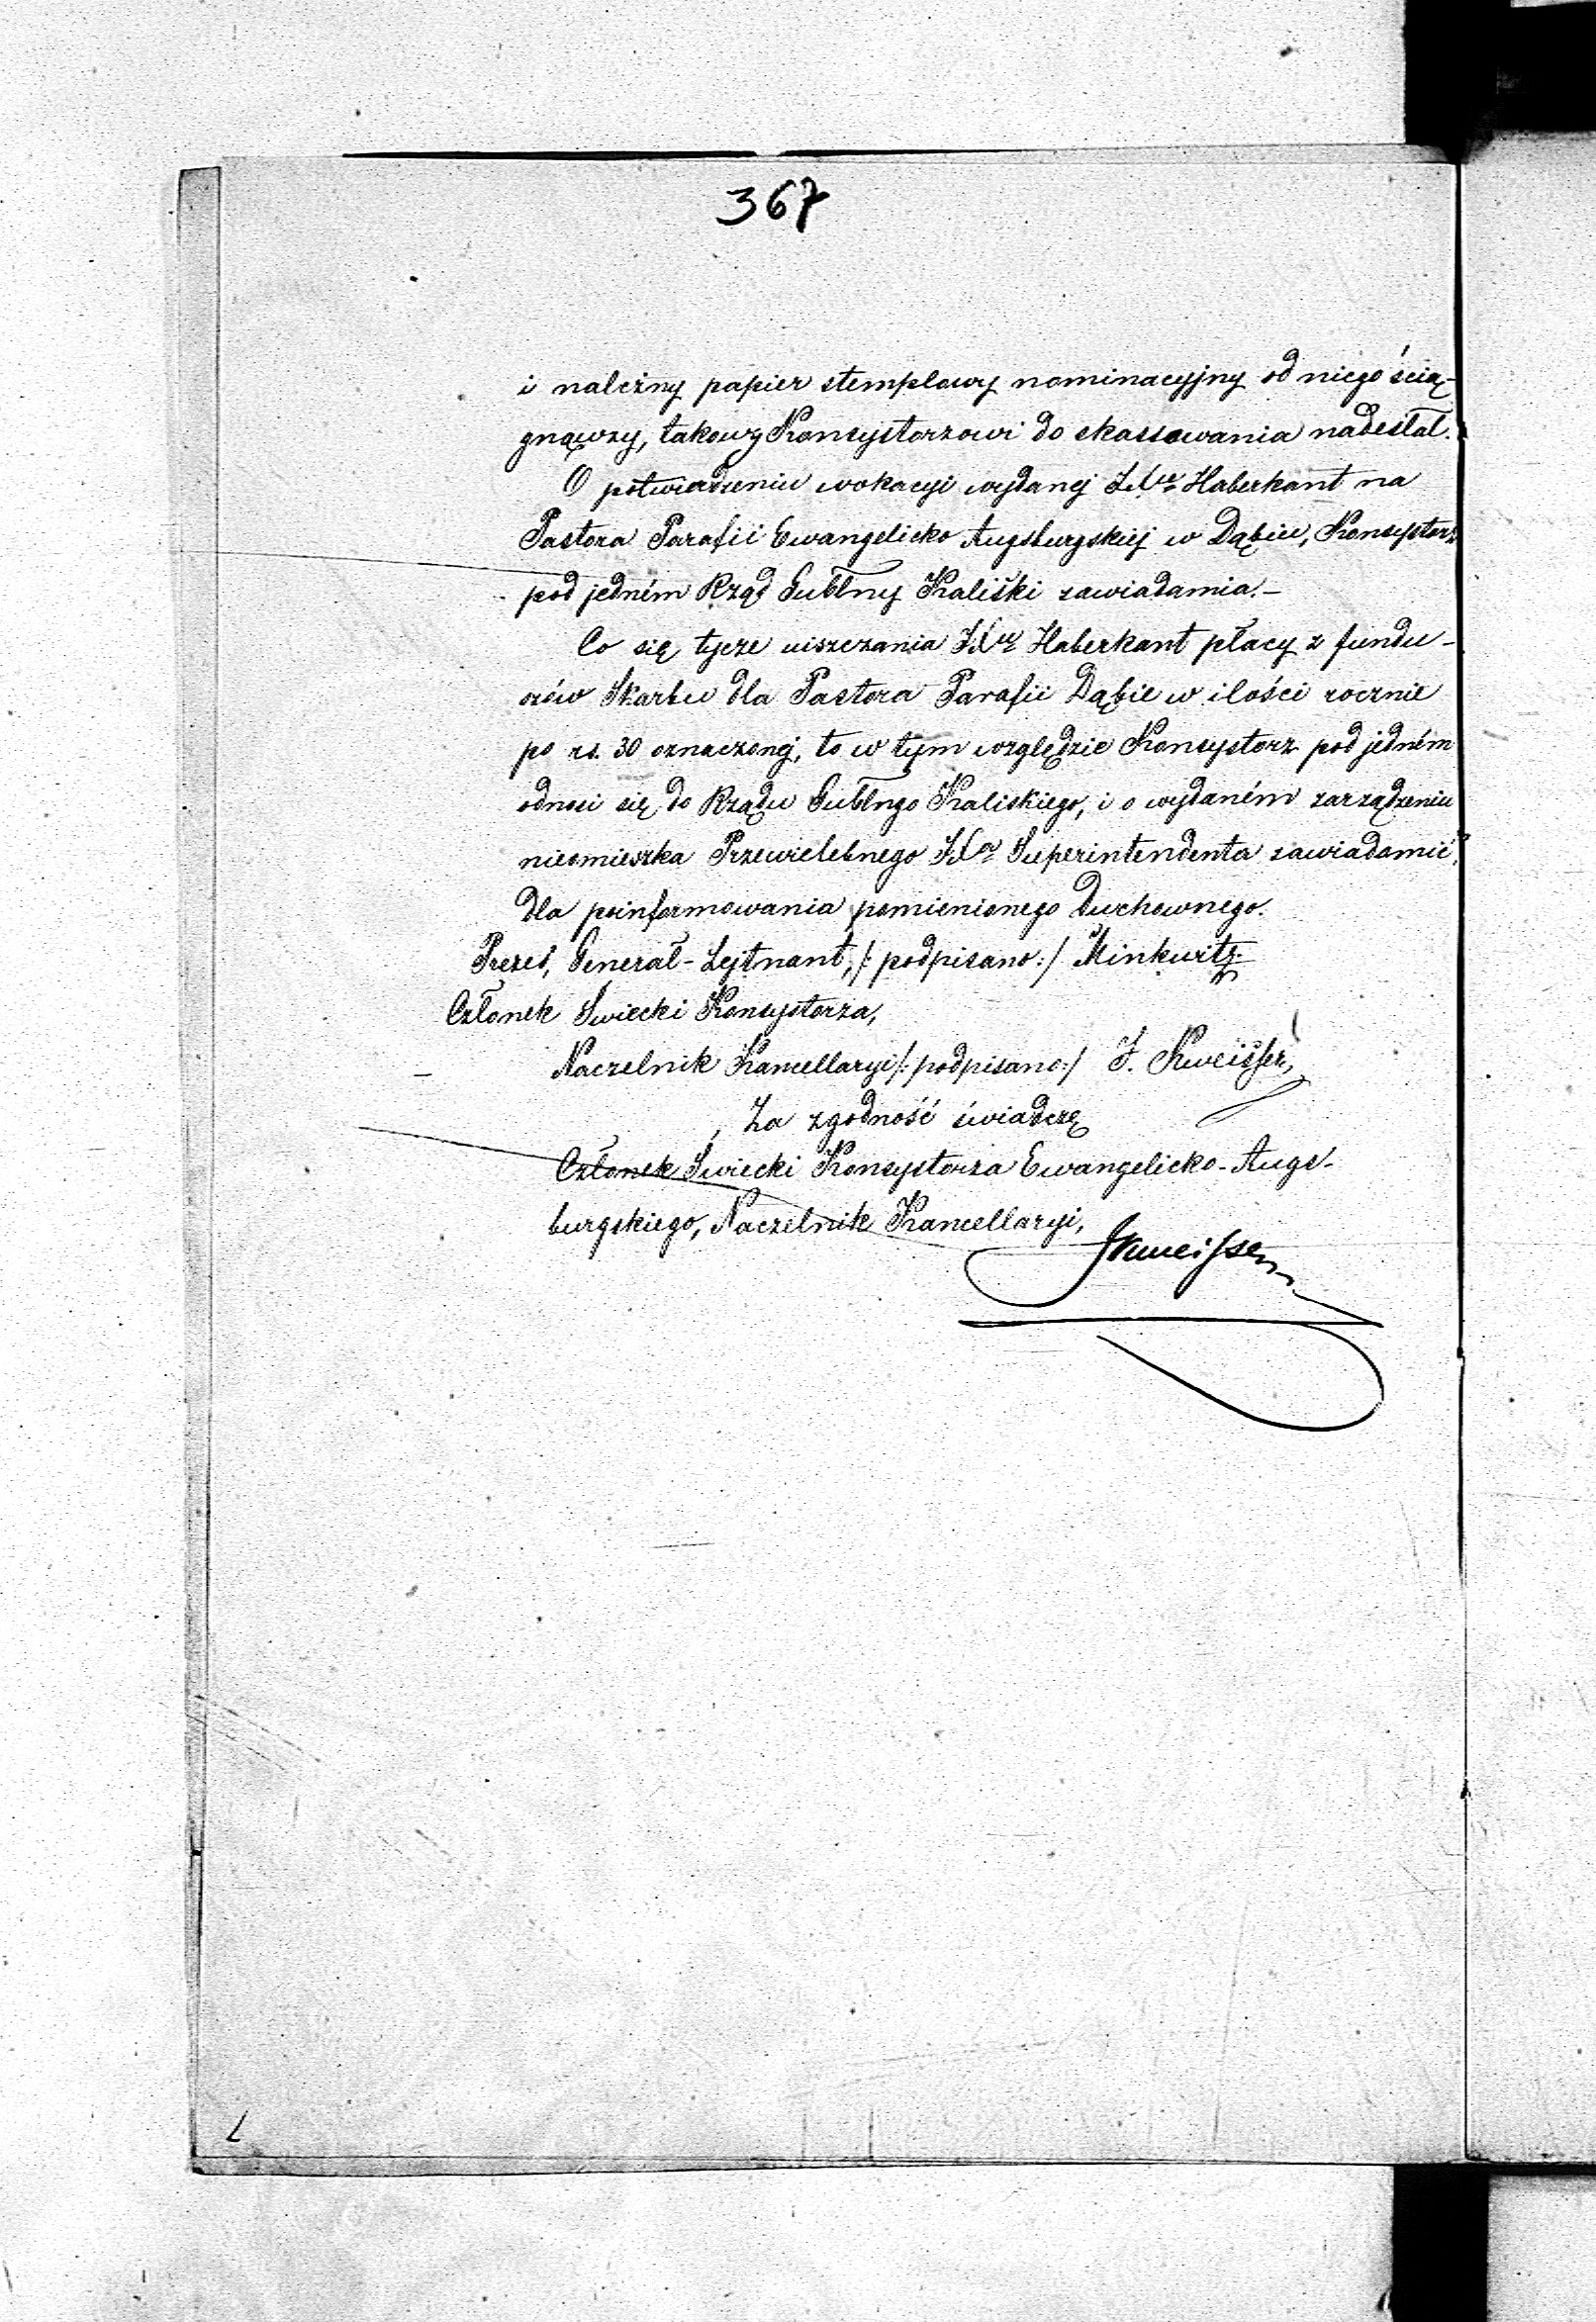 367
i należny papier stemplowy nominacyjny od niego ścią-
gnąwszy, takowy Konsystorzowi do skassowania nadesłał.
O potwierdzeniu wokacyi wydanej Haberkant na
Pastora Parafii Ewangelicko Augsburgskiej w Dąbiu, Konsystorz
pod jedném Rząd Gubllny Kaliski zawiadamia.-
Co się tycze uiszczania Haberkant płacy z fundu-
szów Skarbu dla Pastora Parafii Dąbie w ilości rocznie
po rs. 30 oznaczonej, to w tym względzie Konsystorz pod jedném
odnosi się do Rządu Gubllngo Kaliskiego, i o wydaném zarządzeniu
nieomieszka Przewielebnego Superintendenta zawiadomić,
dla poinformowania pomienionego Duchownego.
Prezes, Generał-Lejtnant, /: podpisano :/ Minkwitz.
Członek Swiecki Konsystorza,
Naczelnik Kancellaryi /: podpisano :/ J. Kweisser,
Za zgodność świadczę
Członek Swiecki Konsystorza Ewangelicko-Augs-
burgskiego, Naczelnik Kancellaryi,
JKweisser